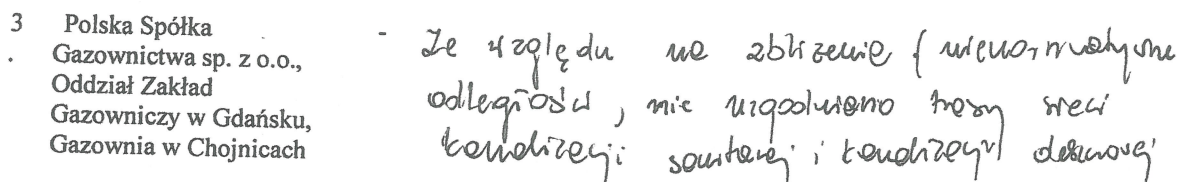 3 Polska Spółka
. Gazownictwa sp. z o.o.,
Oddział Zakład
Gazowniczy w Gdańsku,
Gazownia w Chojnicach
- Ze względu na zbliżenie (nienormatywne
odległości, nie uzgodniono trasy sieci
kanalizacji sanitarnej i kanalizacji deszczowej